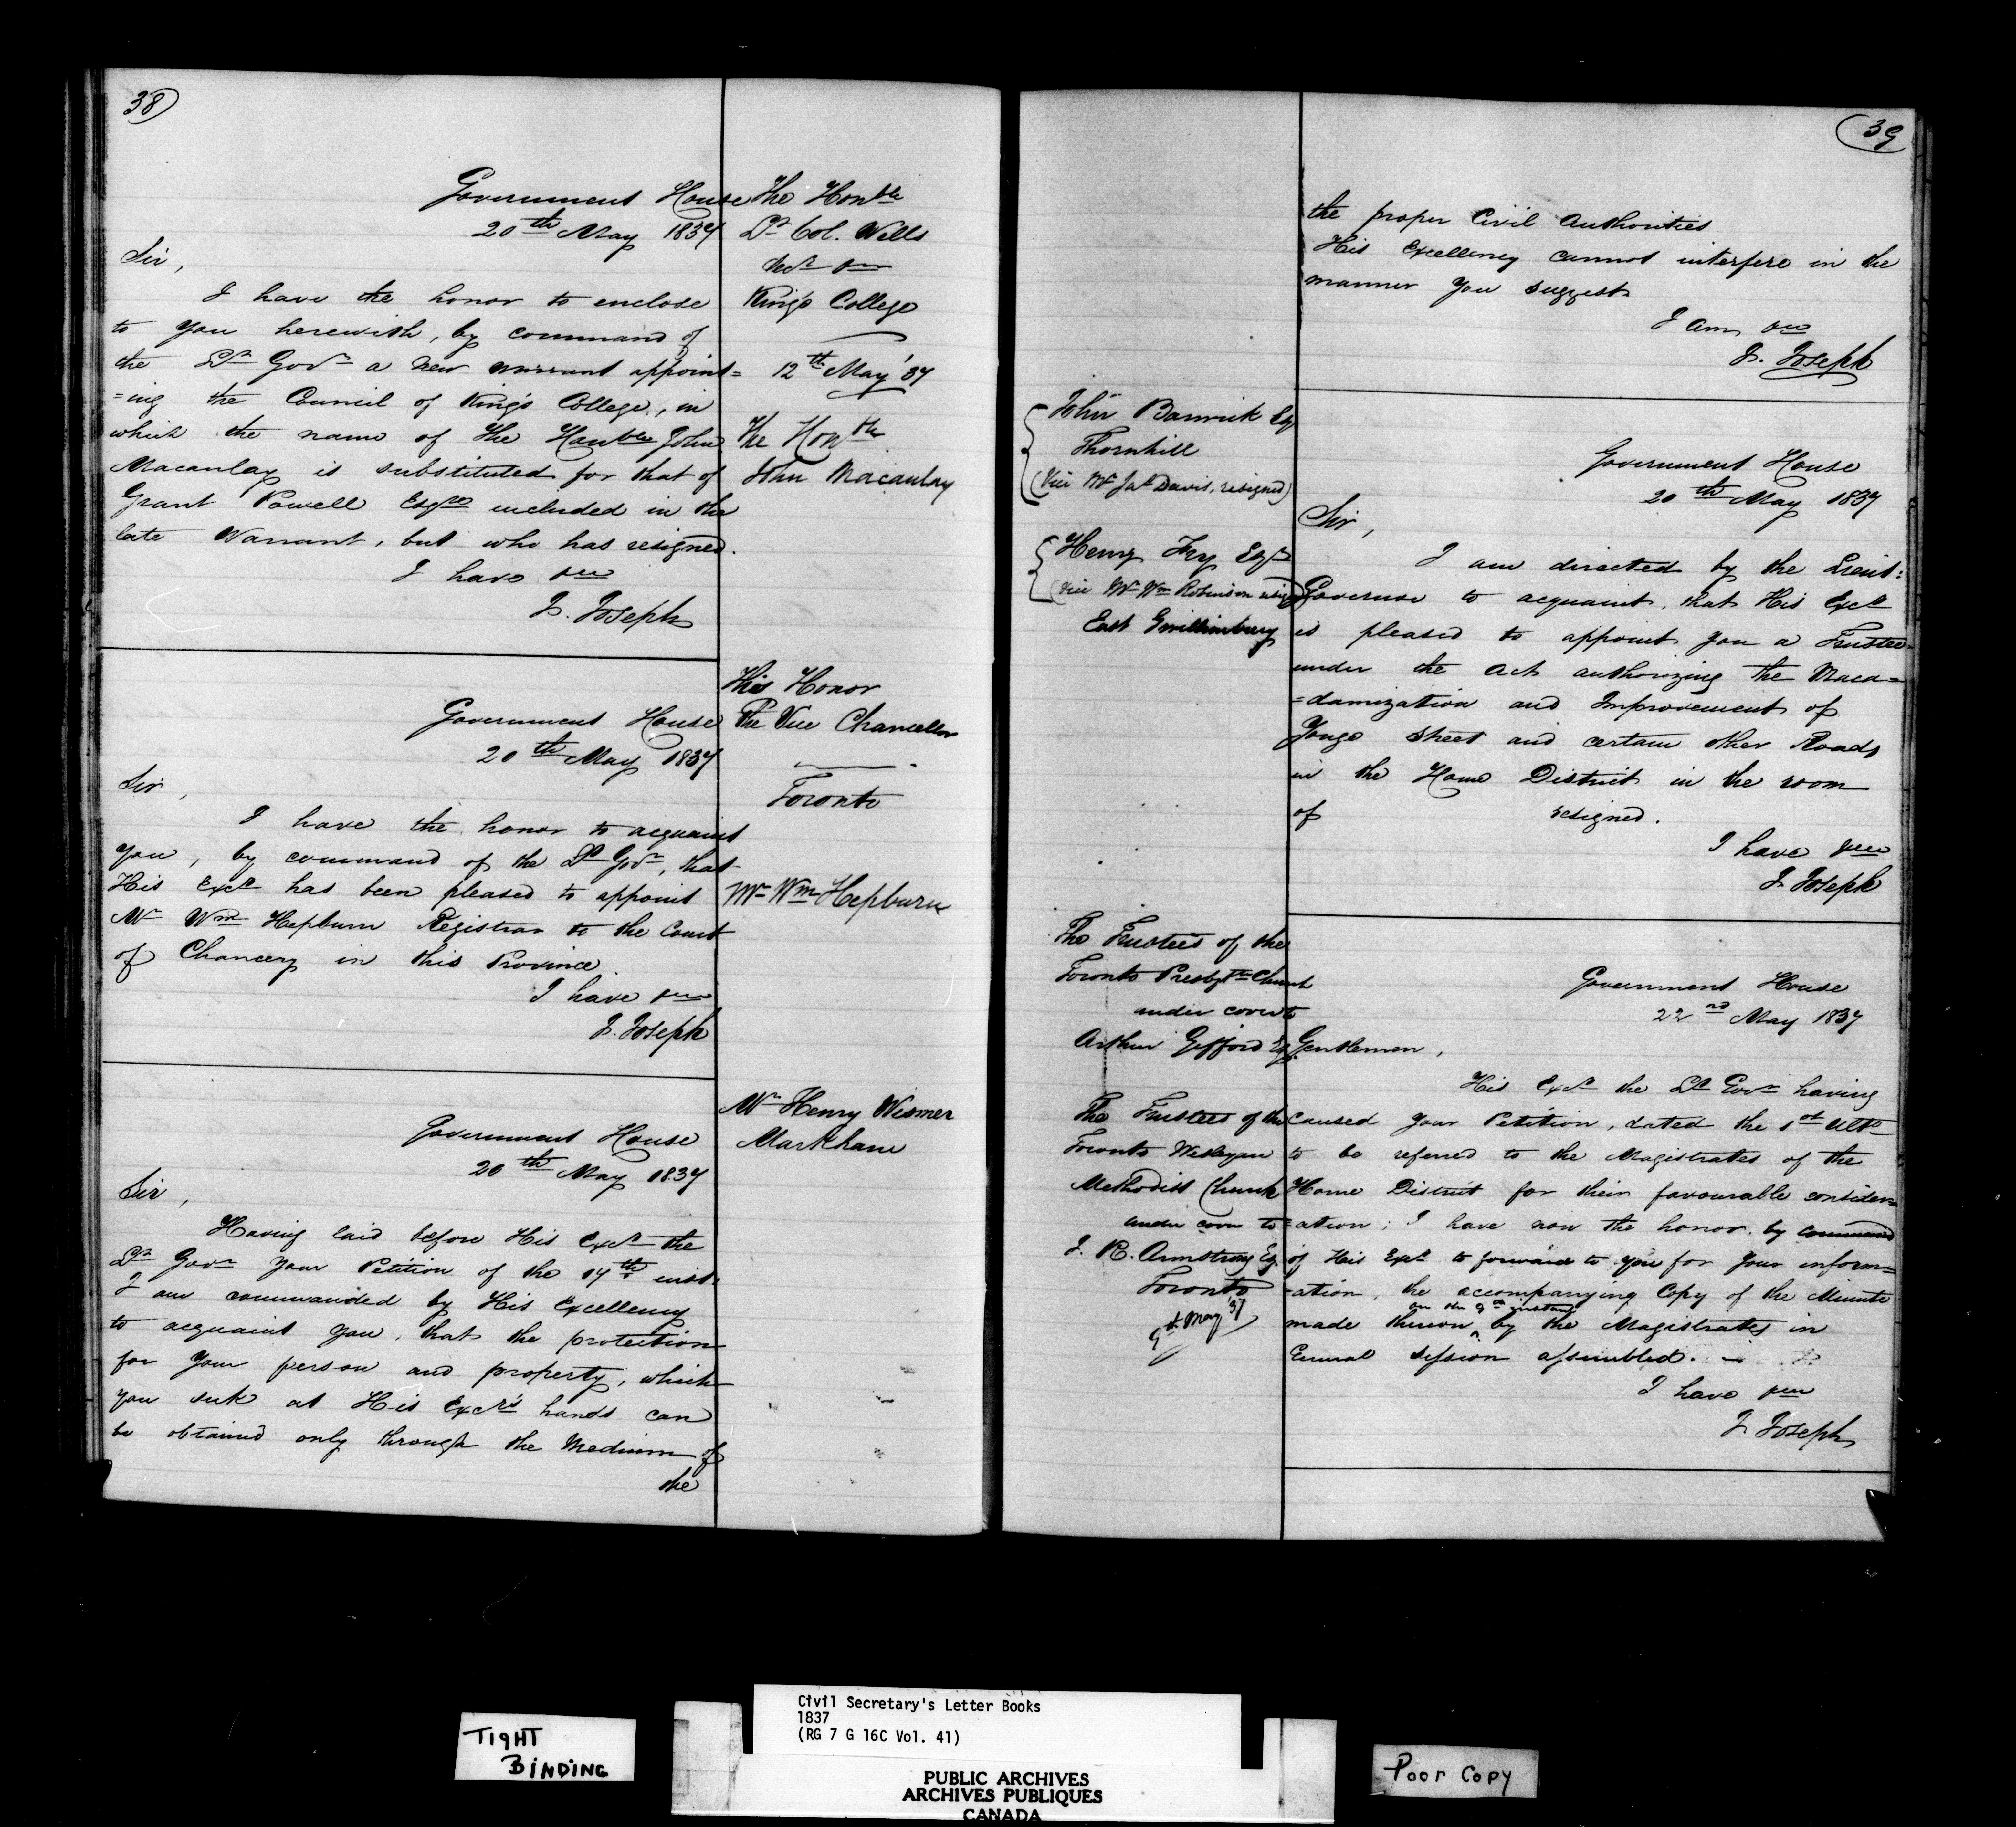 38
Government House
20th May 1837
Sir,
I have the honor to enclose
to you herewith, by command of
the Lt Govr a new warrant appoint=
=ing the Council of King's College, in
which the name of the Honble John
Macaulay is substituted for that of
Grant Powell Esqre included in the
late Warrant, but who has resigned.
I have &c
J. Joseph
The Honble
Lt Col. Wells
&c
King's College
12th May '37
The Honble
John Macaulay
Government House
20th May 1837
Sir,
I have the honor to acquaint
you, by command of the Lt Govr, that
His Excy has been pleased to appoint
Mr Wm Hepburn Registrar to the Court
of Chancery in this Province.
I have &c
J. Joseph
His Honor
The Vice Chancellor
Toronto
Mr Wm Hepburn
Government House
20th May 1837
Sir,
Having laid before His Excy the
Lt Govr your Petition of the 17th inst:
I am commanded by His Excellency
to acquaint you, that the protection
for your person and property, which
you seek at His Excy's hands can
be obtained only through the Medium of
the
Mr Henry Wismer
Markham
39
the proper Civil Authorities
His Excellency cannot interfere in the
manner you suggest
I am &c
J. Joseph
John Barwick Esq
Thornhill
(Vice Mr Jas Davis, resigned)
Henry Fry Esqr
(vice Mr Wm Robinson resigd)
East Gwillimbury
Government House
20th May 1837
Sir,
I am directed by the Lieut:
Governor to acquaint, that His Excy
is pleased to appoint you a Trustee
under the Act authorizing the Maca=
=damization and Improvement of
Yonge Street and certain other Roads
in the Home District in the room
of resigned.
I have &c
J. Joseph
The Trustees of the
Toronto Presbytn Church
under cover to
Arthur Gifford Esq
The Trustees of the
Toronto Wesleyan
Methodist Church
under cover to
J. R. Armstrong Esq
Toronto
9th May '37
Government House
22nd May 1837
Gentlemen,
His Excy the Lt Govr having
caused your Petition, dated the 1st Ulto
to be referred to the Magistrates of the
Home District for their favourable consider=
=ation; I have now the honor by command
of His Excy to forward to you for your inform=
=ation, the accompanying Copy of the Minute
made thereon on the 9th instant by the Magistrates in
General Session assembled.
I have &c
J. Joseph
TIGHT
BINDING
Civil Secretary's Letter Books
1837
(RG 7 G 16C Vol. 41)
PUBLIC ARCHIVES
ARCHIVES PUBLIQUES
CANADA
Poor Copy